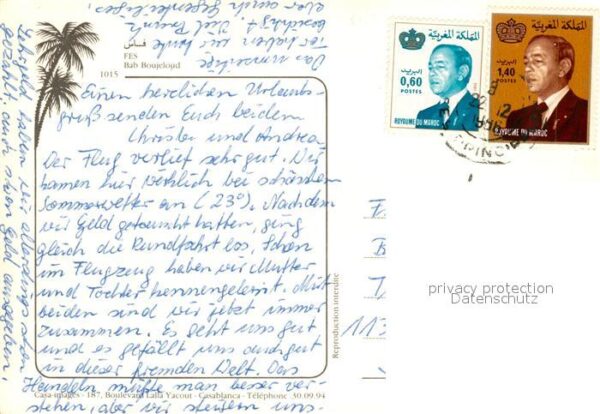 فاس
FES
Bab Boujeloud
1015
Einen herzlichen Urlaubs-
gruß senden Euch beiden
Christer und Andrea.
Der Flug verlief sehr gut. Wir
kamen hier pünktlich bei schönem
Sommerwetter an (23°). Nachdem
wir Geld getauscht hatten, ging
gleich die Rundfahrt los. Schon
im Flugzeug haben wir Mutter
und Tochter kennengelernt. Mit
beiden sind wir jetzt immer
zusammen. Es geht uns gut
und es gefällt uns auch gut
in dieser fremden Welt. Das
Handeln müßte man besser ver-
stehen, aber wir steigern uns
haben wir allerdings schon
gezahlt, auch schon Geld ausgegeben.
haben wir heute
besichtigt. Viel
Casa-images - 187, Boulevard Lalla Yacout - Casablanca - Téléphone 30.09.94
Reproduction interdite
المملكة المغربية
البريد
0,60
POSTES
ROYAUME DU MAROC
المملكة المغربية
البريد
1,40
POSTES
ROYAUME DU MAROC
privacy protection
Datenschutz